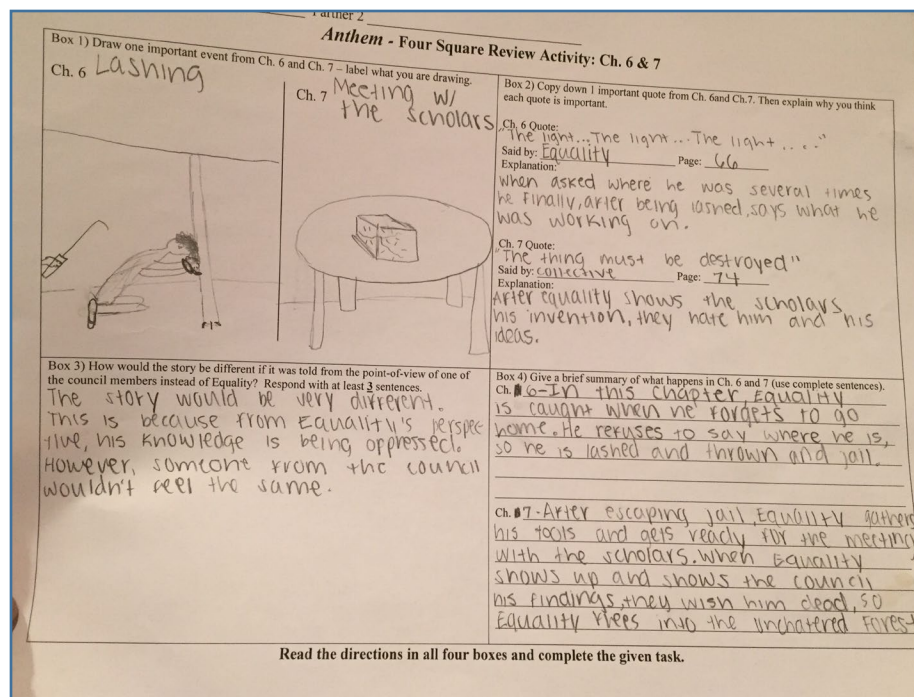 Partner 2
Anthem - Four Square Review Activity: Ch. 6 & 7
Box 1) Draw one important event from Ch. 6 and Ch. 7 – label what you are drawing.
Ch. 6 Lashing
Ch. 7 Meeting w/
the scholars
Box 2) Copy down 1 important quote from Ch. 6and Ch.7. Then explain why you think
each quote is important.
Ch. 6 Quote:
"The light...The light...The light ...."
Said by: Equality Page: 66
Explanation:
When asked where he was several times
he finally, after being lashed, says what he
was working on.
Ch. 7 Quote:
"The thing must be destroyed"
Said by: collective Page: 74
Explanation:
After equality shows the scholars
his invention, they hate him and his
ideas.
Box 3) How would the story be different if it was told from the point-of-view of one of
the council members instead of Equality? Respond with at least 3 sentences.
The story would be very different.
This is because from Equality's perspec-
tive, his knowledge is being oppressed.
However, someone from the council
wouldn't feel the same.
Box 4) Give a brief summary of what happens in Ch. 6 and 7 (use complete sentences).
Ch. 6-In this chapter, Equality
is caught when he forgets to go
home. He refuses to say where he is,
so he is lashed and thrown and jail.
Ch. 7-After escaping jail, Equality gathers
his tools and gets ready for the meeting
with the scholars. When Equality
shows up and shows the council
his findings, they wish him dead, so
Equality flees into the unchatered Forest
Read the directions in all four boxes and complete the given task.